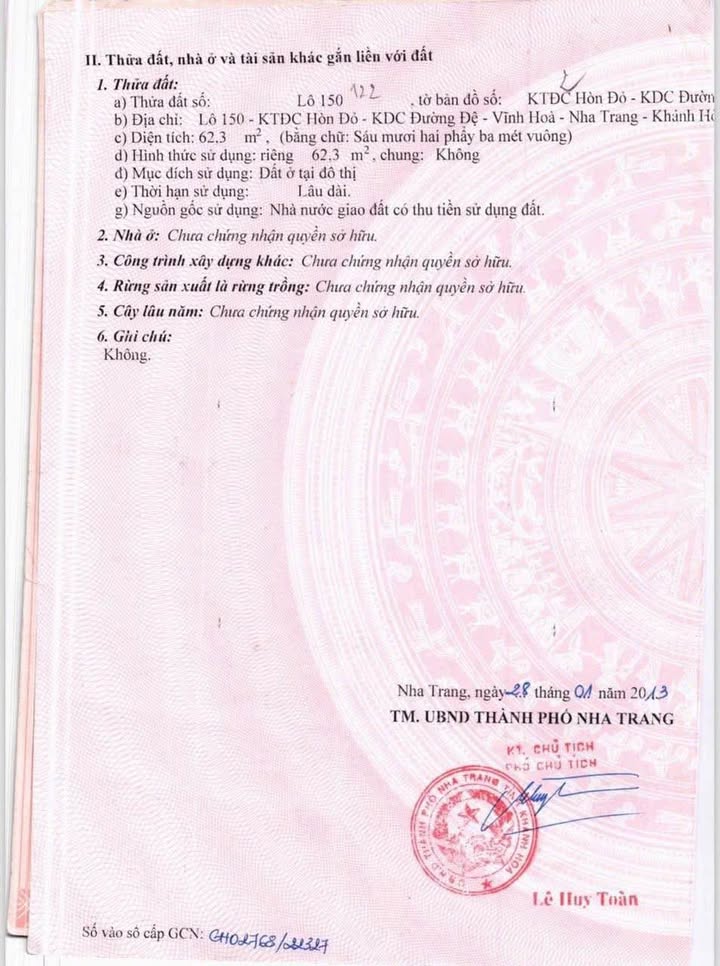 II. Thửa đất, nhà ở và tài sản khác gắn liền với đất
1. Thửa đất:
a) Thửa đất số: Lô 150 122 , tờ bản đồ số: 2 KTĐC Hòn Đỏ - KDC Đườn
b) Địa chỉ: Lô 150 - KTĐC Hòn Đỏ - KDC Đường Đệ - Vĩnh Hoà - Nha Trang - Khánh Hò
c) Diện tích: 62,3 m², (bằng chữ: Sáu mươi hai phẩy ba mét vuông)
d) Hình thức sử dụng: riêng 62,3 m², chung: Không
đ) Mục đích sử dụng: Đất ở tại đô thị
e) Thời hạn sử dụng: Lâu dài.
g) Nguồn gốc sử dụng: Nhà nước giao đất có thu tiền sử dụng đất.
2. Nhà ở: Chưa chứng nhận quyền sở hữu.
3. Công trình xây dựng khác: Chưa chứng nhận quyền sở hữu.
4. Rừng sản xuất là rừng trồng: Chưa chứng nhận quyền sở hữu.
5. Cây lâu năm: Chưa chứng nhận quyền sở hữu.
6. Ghi chú:
Không.
Nha Trang, ngày 28 tháng 01 năm 2013
TM. UBND THÀNH PHỐ NHA TRANG
KT. CHỦ TỊCH
PHÓ CHỦ TỊCH
U.B.N.D THÀNH PHỐ NHA TRANG KHÁNH HÒA
Lê Huy Toàn
Số vào sổ cấp GCN: CH02768/22327